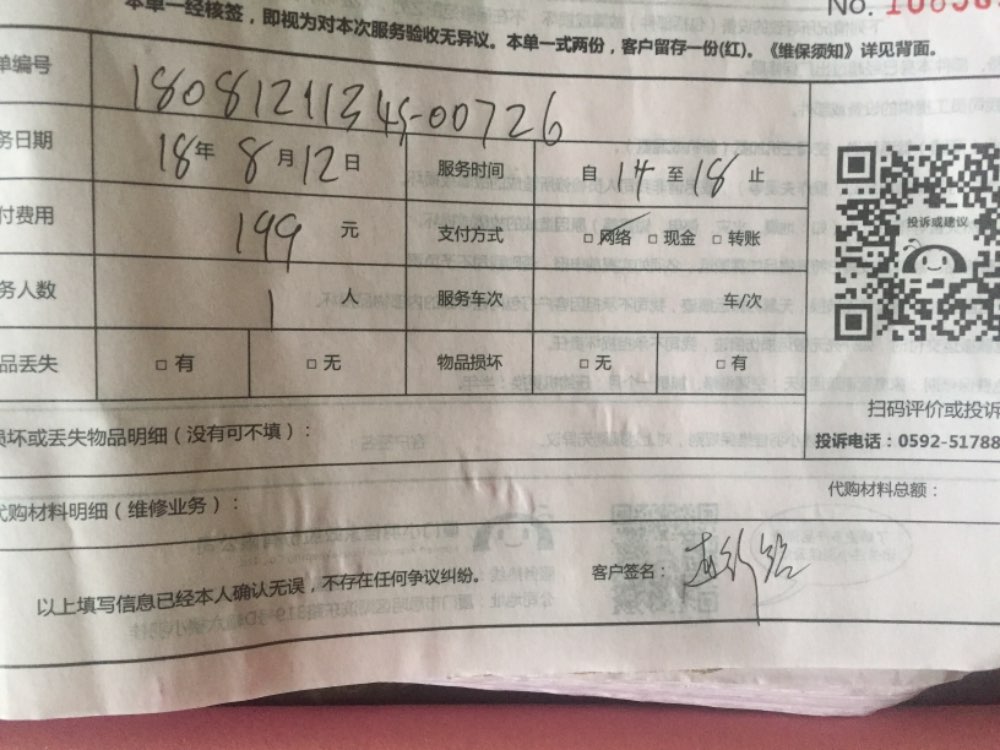 No.
本单一经核签，即视为对本次服务验收无异议。本单一式两份，客户留存一份(红)。《维保须知》详见背面。
单编号 18081211345-00726
务日期 18年8月12日 服务时间 自14至18止
付费用 199元 支付方式 □网络 □现金 □转账
务人数 1人 服务车次 车/次
品丢失 □有 □无 物品损坏 □无 □有
投诉或建议
扫码评价或投诉
投诉电话：0592-51788
损坏或丢失物品明细（没有可不填）：
代购材料明细（维修业务）：
代购材料总额：
以上填写信息已经本人确认无误，不存在任何争议纠纷。
客户签名：